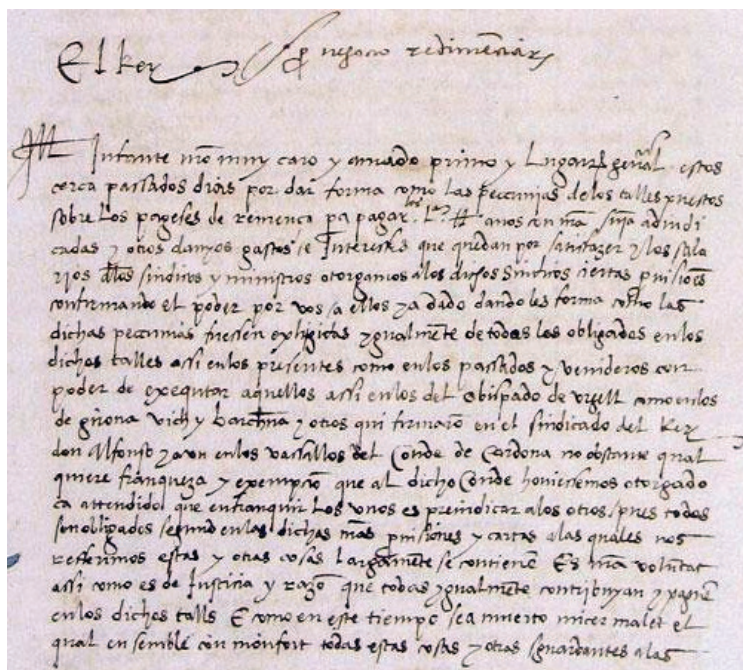 El Rey
pro negocio redimenciar
Infante nro muy caro y amado primo y Lugart. general. estos
cerca passados dias por dar forma como las peccunias de los talles puestos
sobre Los pageses de remença pa pagar los anos con nra snia adiudi
cadas y otros danyos gastos e Interesses que quedan por satisfazer y los sala
rios dlos sindicos y ministros otorgamos a los dichos sindicos ciertas puisiões
confirmando el poder por vos a ellos ya dado dando les forma como las
dichas peccunias fuessen exhigidas ygualmẽte de todos los obligados en los
dichos talles assi en los presentes como en los passados y venideros con
poder de exequtar aquellos assi en los del obispado de vrgell como en los
de girona vich y barchna y otros qui firmarõ en el sindicado del Rey
don Alfonso y aun en los vassallos del Conde de Cardona no obstante qual
quiere franqueza y exempciõ que al dicho Conde houiessemos otorgado
ca attendido que enfranquir Los vnos es preiudicar a los otros pues todos
son obligados segund en las dichas nras puisiones y cartas a las quales nos
refferimos estas y otras cosas largamẽte se contienẽ Es nra voluntat
assi como es de Iusticia y razõ que todos ygualmẽte contribuyan y paguẽ
en los dichos talls E como en este tiempo sea muerto micer malet el
qual ensemble con monfort todas estas cosas y otras sguardantes a las